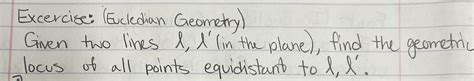 Excercise: (Eucledian Geometry)
Given two lines l, l' (in the plane), find the geometric
locus of all points equidistant to l, l'.